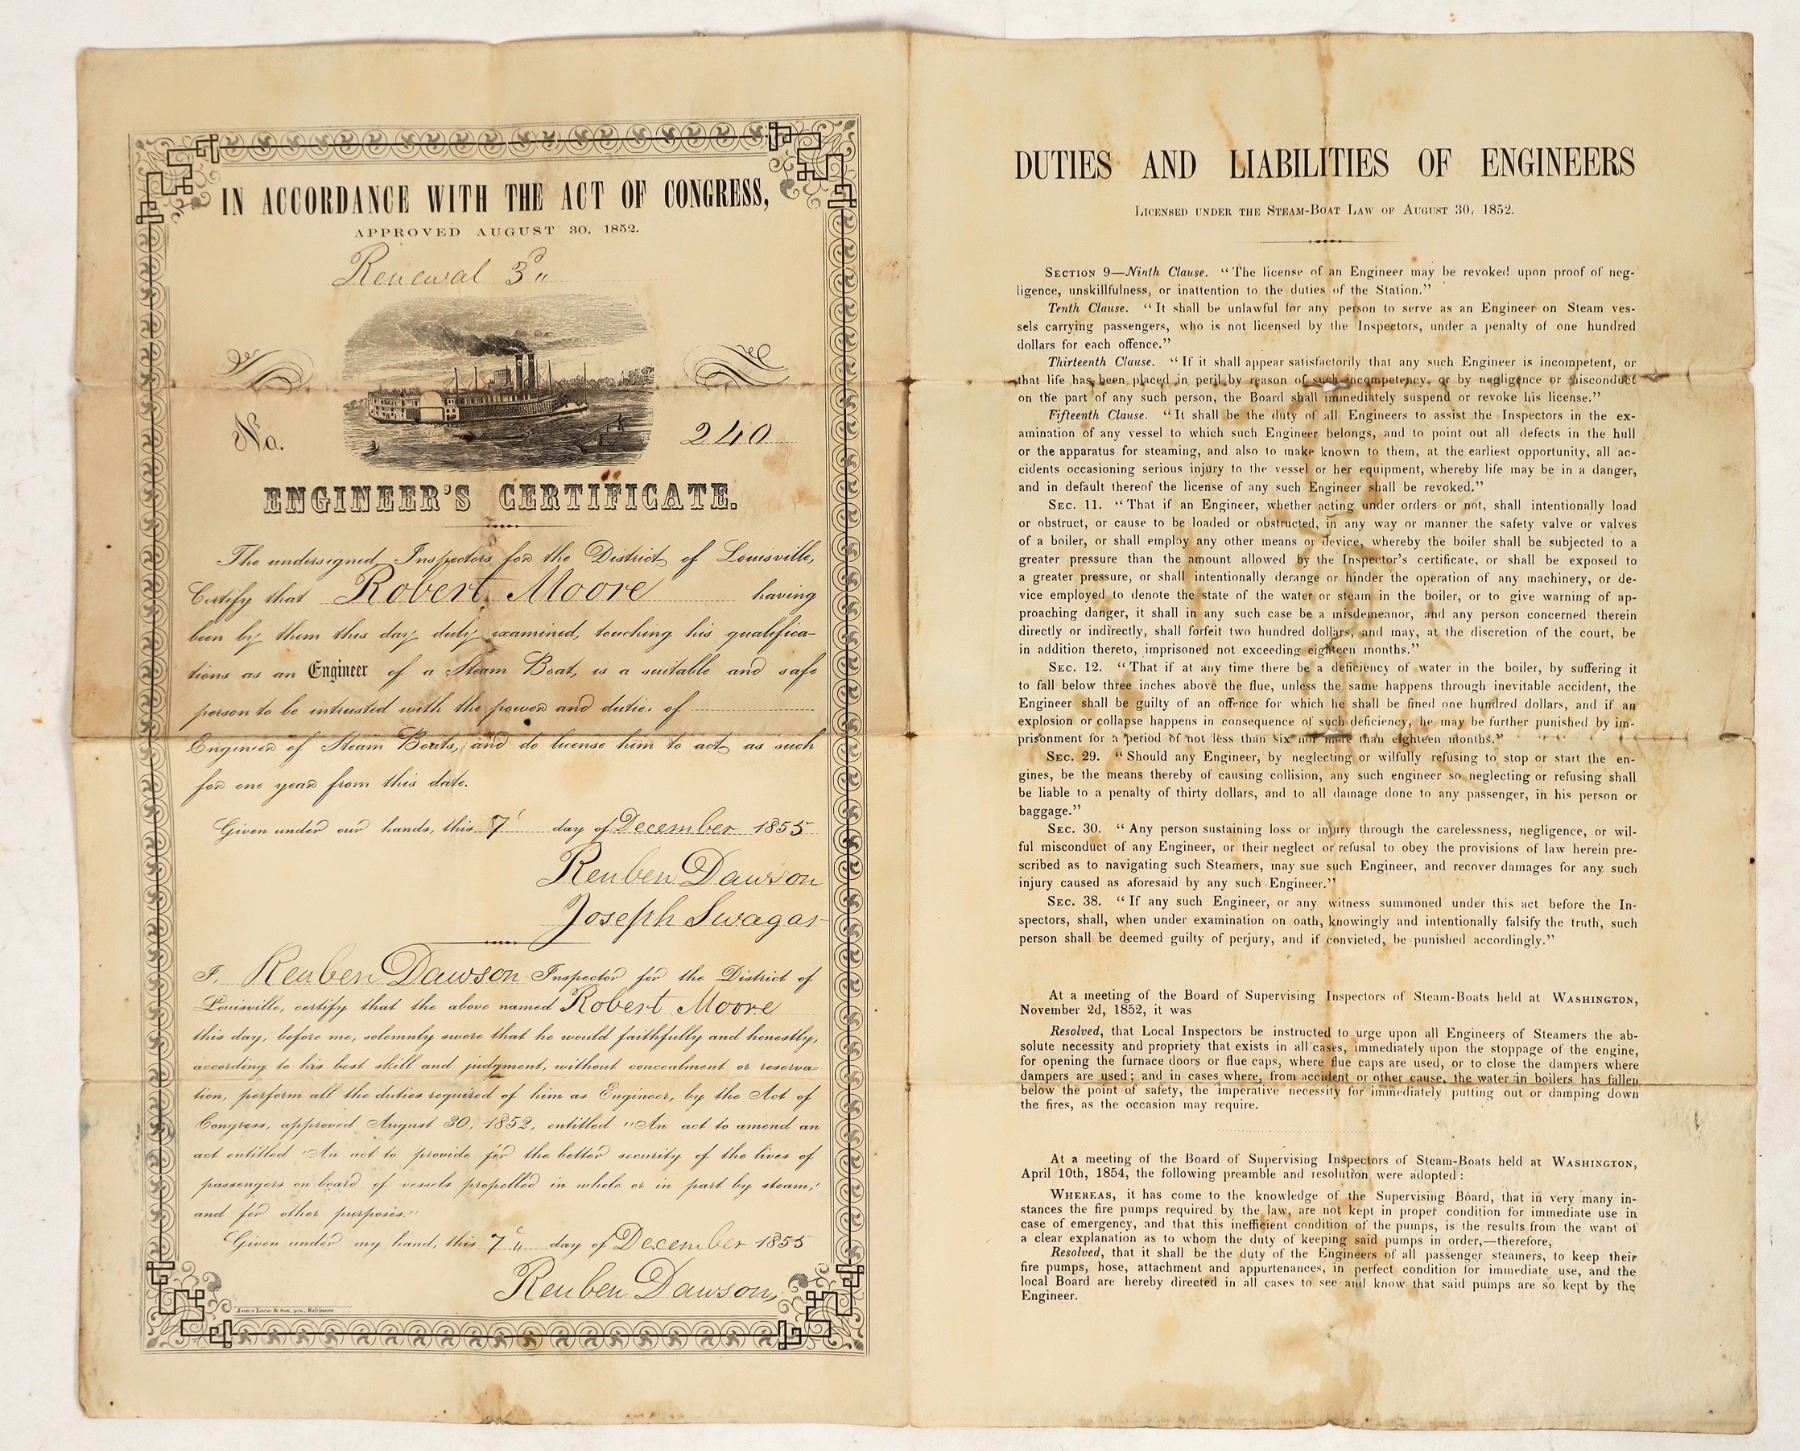 IN ACCORDANCE WITH THE ACT OF CONGRESS,
APPROVED AUGUST 30, 1852.
Renewal 3d
No. 240
ENGINEER'S CERTIFICATE.
The undersigned, Inspectors for the District of Louisville,
Certify that Robert Moore having
been by them this day duly examined, touching his qualifica-
tions as an Engineer of a Steam Boat, is a suitable and safe
person to be intrusted with the power and duties of
Engineer of Steam Boats, and do license him to act as such
for one year from this date.
Given under our hands, this 7 day of December 1855
Reuben Dawson
Joseph Swagar
I, Reuben Dawson Inspector for the District of
Louisville, certify that the above named Robert Moore
this day, before me, solemnly swore that he would faithfully and honestly,
according to his best skill and judgment, without concealment or reserva-
tion, perform all the duties required of him as Engineer, by the Act of
Congress, approved August 30, 1852, entitled "An act to amend an
act entitled 'An act to provide for the better security of the lives of
passengers on board of vessels propelled in whole or in part by steam,'
and for other purposes."
Given under my hand, this 7 day of December 1855
Reuben Dawson,
James Lucas & Son, prs., Baltimore
DUTIES AND LIABILITIES OF ENGINEERS
LICENSED UNDER THE STEAM-BOAT LAW OF AUGUST 30, 1852.
SECTION 9—Ninth Clause. "The license of an Engineer may be revoked upon proof of neg-
ligence, unskillfulness, or inattention to the duties of the Station."
Tenth Clause. "It shall be unlawful for any person to serve as an Engineer on Steam ves-
sels carrying passengers, who is not licensed by the Inspectors, under a penalty of one hundred
dollars for each offence."
Thirteenth Clause. "If it shall appear satisfactorily that any such Engineer is incompetent, or
that life has been placed in peril by reason of such incompetency, or by negligence or misconduct
on the part of any such person, the Board shall immediately suspend or revoke his license."
Fifteenth Clause. "It shall be the duty of all Engineers to assist the Inspectors in the ex-
amination of any vessel to which such Engineer belongs, and to point out all defects in the hull
or the apparatus for steaming, and also to make known to them, at the earliest opportunity, all ac-
cidents occasioning serious injury to the vessel or her equipment, whereby life may be in a danger,
and in default thereof the license of any such Engineer shall be revoked."
SEC. 11. "That if an Engineer, whether acting under orders or not, shall intentionally load
or obstruct, or cause to be loaded or obstructed, in any way or manner the safety valve or valves
of a boiler, or shall employ any other means or device, whereby the boiler shall be subjected to a
greater pressure than the amount allowed by the Inspector's certificate, or shall be exposed to
a greater pressure, or shall intentionally derange or hinder the operation of any machinery, or de-
vice employed to denote the state of the water or steam in the boiler, or to give warning of ap-
proaching danger, it shall in any such case be a misdemeanor, and any person concerned therein
directly or indirectly, shall forfeit two hundred dollars, and may, at the discretion of the court, be
in addition thereto, imprisoned not exceeding eighteen months."
SEC. 12. "That if at any time there be a deficiency of water in the boiler, by suffering it
to fall below three inches above the flue, unless the same happens through inevitable accident, the
Engineer shall be guilty of an offence for which he shall be fined one hundred dollars, and if an
explosion or collapse happens in consequence of such deficiency, he may be further punished by im-
prisonment for a period of not less than six nor more than eighteen months."
SEC. 29. "Should any Engineer, by neglecting or wilfully refusing to stop or start the en-
gines, be the means thereby of causing collision, any such engineer so neglecting or refusing shall
be liable to a penalty of thirty dollars, and to all damage done to any passenger, in his person or
baggage."
SEC. 30. "Any person sustaining loss or injury through the carelessness, negligence, or wil-
ful misconduct of any Engineer, or their neglect or refusal to obey the provisions of law herein pre-
scribed as to navigating such Steamers, may sue such Engineer, and recover damages for any such
injury caused as aforesaid by any such Engineer."
SEC. 38. "If any such Engineer, or any witness summoned under this act before the In-
spectors, shall, when under examination on oath, knowingly and intentionally falsify the truth, such
person shall be deemed guilty of perjury, and if convicted, be punished accordingly."
At a meeting of the Board of Supervising Inspectors of Steam-Boats held at WASHINGTON,
November 2d, 1852, it was
Resolved, that Local Inspectors be instructed to urge upon all Engineers of Steamers the ab-
solute necessity and propriety that exists in all cases, immediately upon the stoppage of the engine,
for opening the furnace doors or flue caps, where flue caps are used, or to close the dampers where
dampers are used; and in cases where, from accident or other cause, the water in boilers has fallen
below the point of safety, the imperative necessity for immediately putting out or damping down
the fires, as the occasion may require.
At a meeting of the Board of Supervising Inspectors of Steam-Boats held at WASHINGTON,
April 10th, 1854, the following preamble and resolution were adopted:
WHEREAS, it has come to the knowledge of the Supervising Board, that in very many in-
stances the fire pumps required by the law, are not kept in proper condition for immediate use in
case of emergency, and that this inefficient condition of the pumps, is the results from the want of
a clear explanation as to whom the duty of keeping said pumps in order,—therefore,
Resolved, that it shall be the duty of the Engineers of all passenger steamers, to keep their
fire pumps, hose, attachment and appurtenances, in perfect condition for immediate use, and the
local Board are hereby directed in all cases to see and know that said pumps are so kept by the
Engineer.